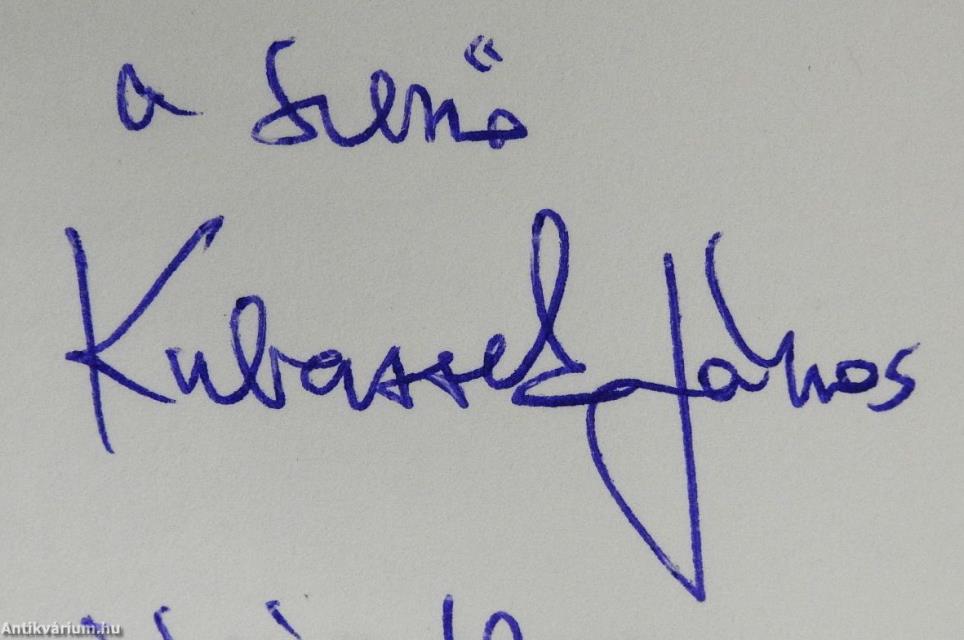 a szerző
Kubassek János
Antikvárium.hu